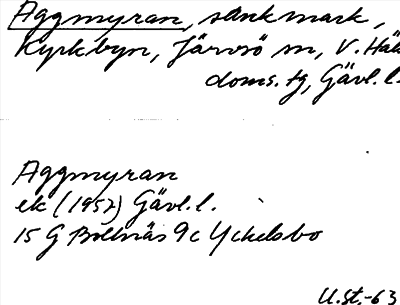 Aggmyran, sank mark,
Kyrkbyn, Järvsö sn, V. Häl
doms. tg, Gävl. l.
Aggmyran
ek (1957) Gävl. l.
15 G Bollnäs 9c Yckelsbo
U.St.-63